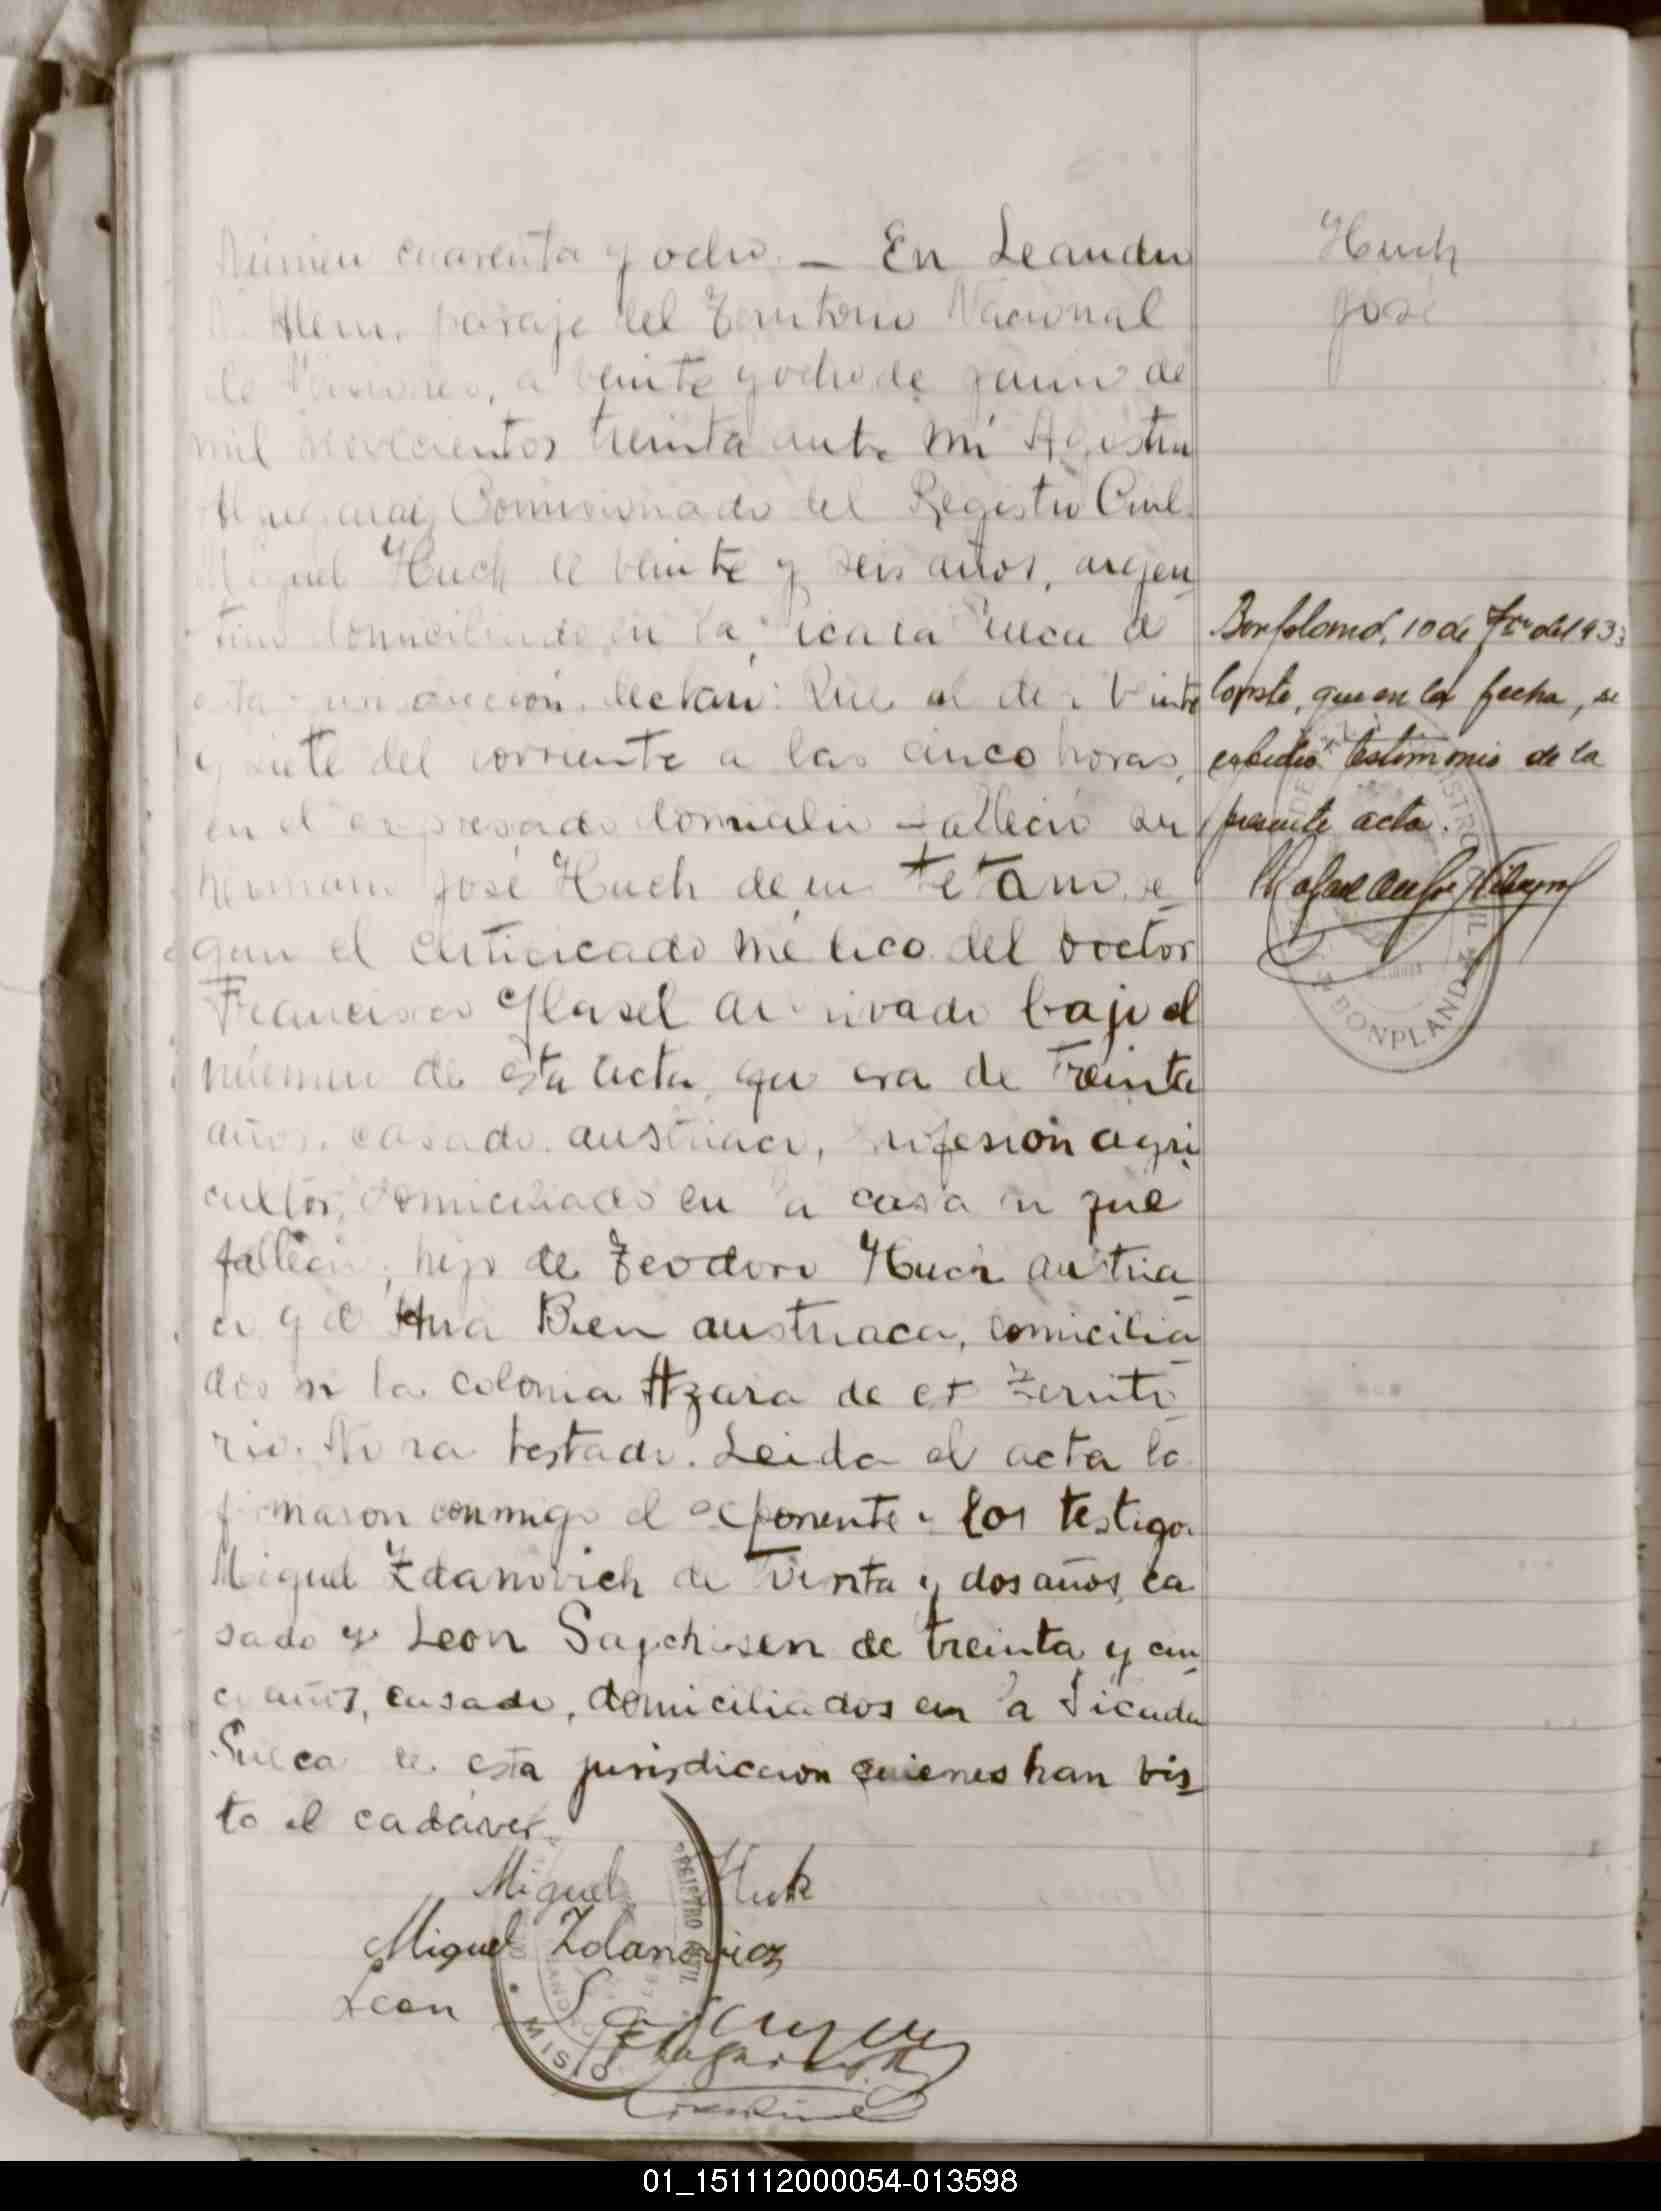 Número cuarenta y ocho. — En Leandro
N. Alem, paraje del Territorio Nacional
de Misiones, a veinte y ocho de junio de
mil novecientos treinta ante mi
Comisionado del Registro Civil
Miguel Huch de veinte y seis años, argen
tino domiciliado en la Picada Sueca de
esta jurisdicción, declaró: Que el dia veinte
y siete del corriente a las cinco horas,
en el expresado domicilio falleció su
hermano José Huch de un tétano, se
gún el certificado médico del doctor
Francisco Glasel archivado bajo el
número de esta acta, que era de treinta
años, casado, austriaco, profesión agri
cultor, domiciliado en la casa en que
falleció, hijo de Teodoro Huch austria
co y de Ana Bien austriaca, domicilia
dos en la colonia Azara de este Territo
rio. No ha testado. Leida el acta la
firmaron conmigo el exponente y los testigos
Miguel Zdanovich de treinta y dos años, ca
sado y Leon Sapchisen de treinta y cin
co años, casado, domiciliados en la Picada
Sueca de esta jurisdiccion quienes han vis
to el cadáver.
Miguel Huk
Miguel Zdanowicz
Leon
Huch
José
Bonpland, 10 de del 933
Conste, que en la fecha, se
expidió testimonio de la
presente acta.
Rafael
BONPLAND
REGISTRO CIVIL
MISIO
01_151112000054-013598